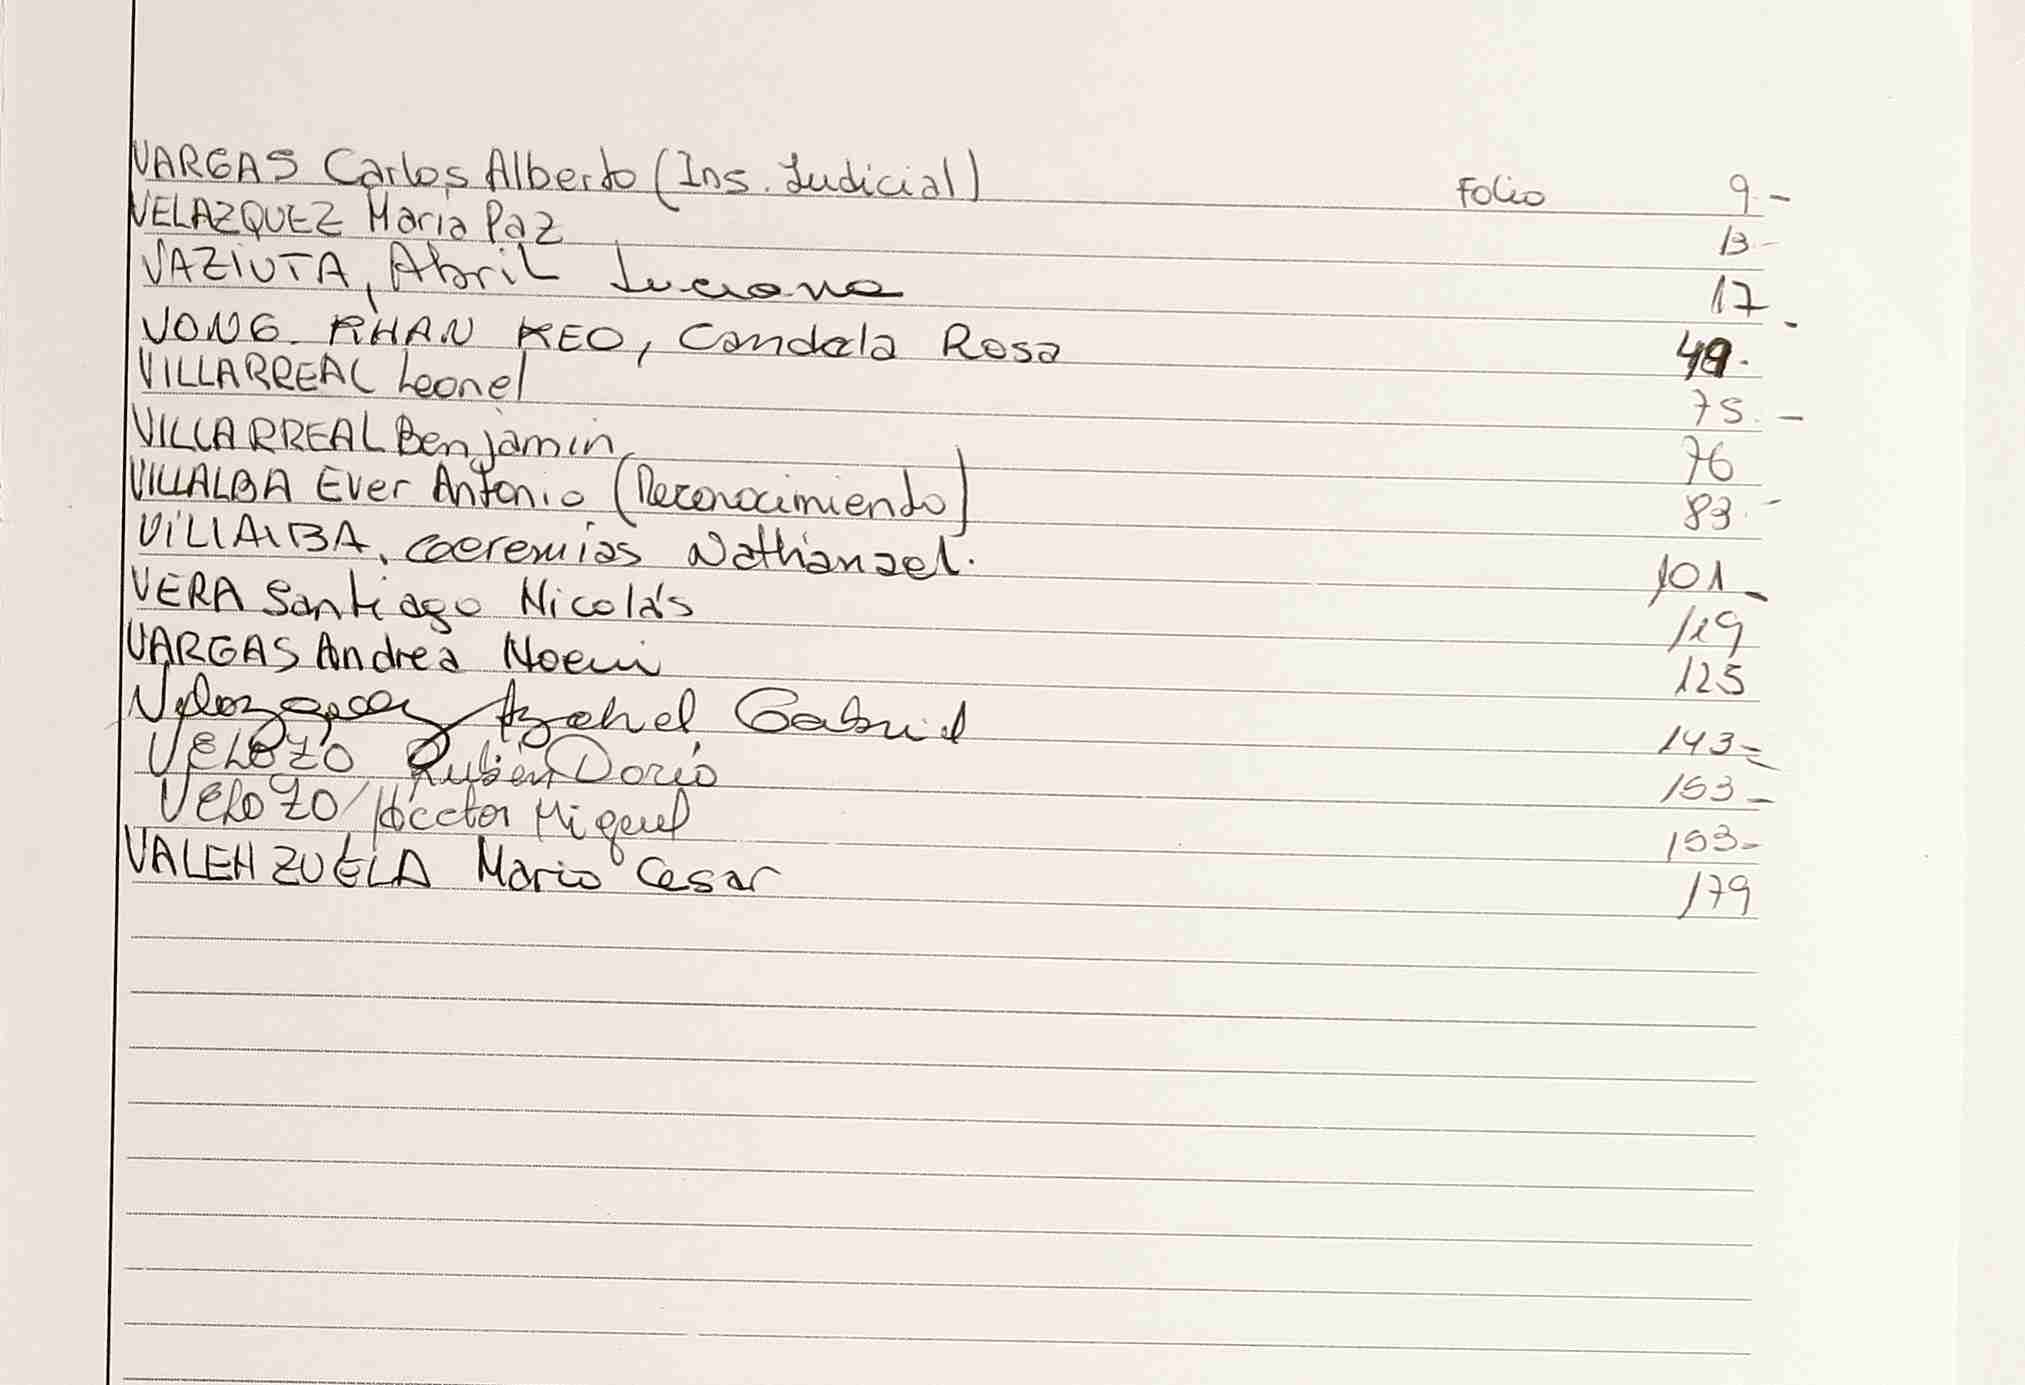 VARGAS Carlos Alberto (Ins. Judicial) Folio 9.-
VELAZQUEZ Maria Paz 13-
VAZIUTA, Abril Luciana 17
VONG. KHAN KEO, Candela Rosa 49.
VILLARREAL Leonel 75.-
VILLARREAL Benjamin 76
VILLALBA Ever Antonio (Reconocimiento) 83.-
VILLALBA, Geremias Nathanael. 101-
VERA Santiago Nicolás 119
VARGAS Andrea Noemi 125
Velazquez Azahel Gabriel 143-
VELOZO Rubén Dario 153-
VELOZO Héctor Miguel 153-
VALENZUELA Mario Cesar 179